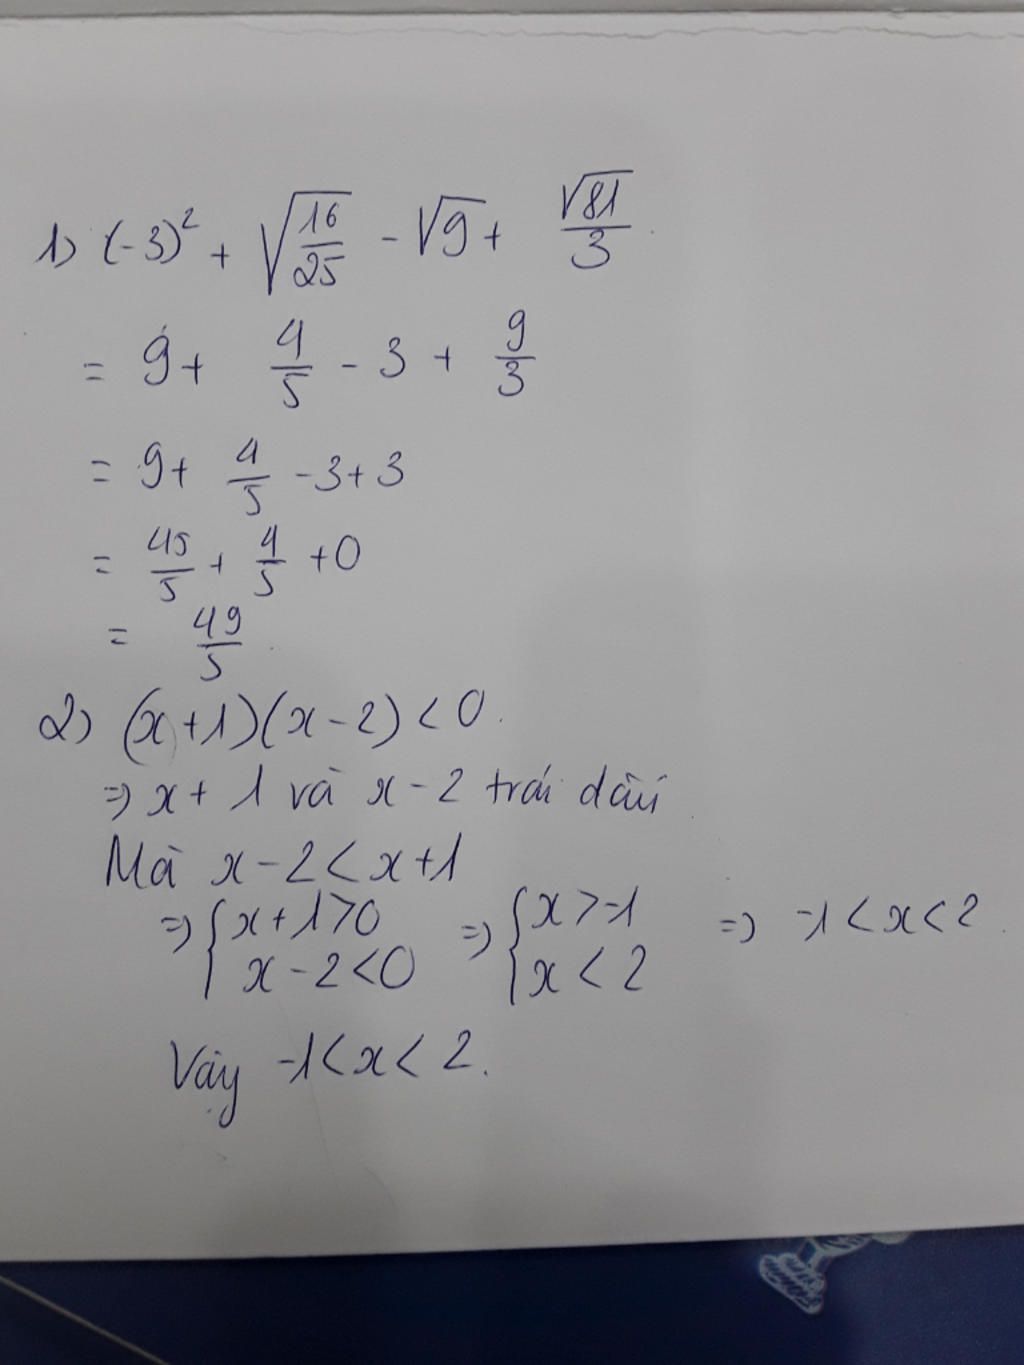 1) (-3)² + √(16/25) - √9 + √81/3
= 9 + 4/5 - 3 + 9/3
= 9 + 4/5 - 3 + 3
= 45/5 + 4/5 + 0
= 49/5
2) (x+1)(x-2) < 0.
⇒ x + 1 và x - 2 trái dấu
Mà x - 2 < x + 1
⇒ { x + 1 > 0 ; x - 2 < 0 ⇒ { x > -1 ; x < 2 ⇒ -1 < x < 2
Vậy -1 < x < 2.